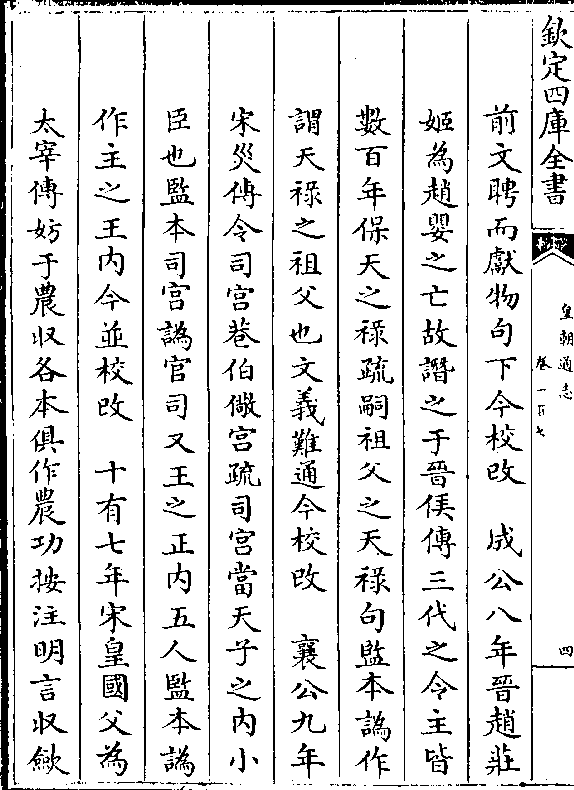 欽定四庫全書
皇朝通志
卷一百七
四
前文聘而獻物句下今校改　成公八年晉趙莊
姬為趙嬰之亡故譖之于晉侯傳三代之令主皆
數百年保天之祿疏嗣祖父之天祿句監本譌作
謂天祿之祖父也文義難通今校改　襄公九年
宋災傳令司宮巷伯儆宮疏司宮當天子之內小
臣也監本司宮譌官司又王之正內五人監本譌
作主之王內今並校改　十有七年宋皇國父為
太宰傳妨于農収各本俱作農功按注明言収歛